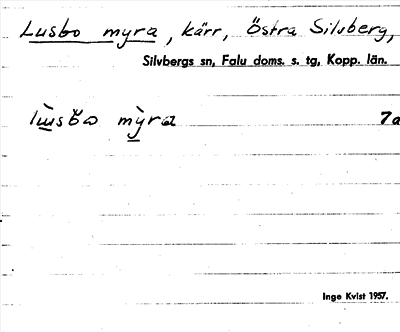 Lusbo myra, kärr, Östra Silvberg,
Silvbergs sn, Falu doms. s. tg, Kopp. län.
myra 7a
Inge Kvist 1957.